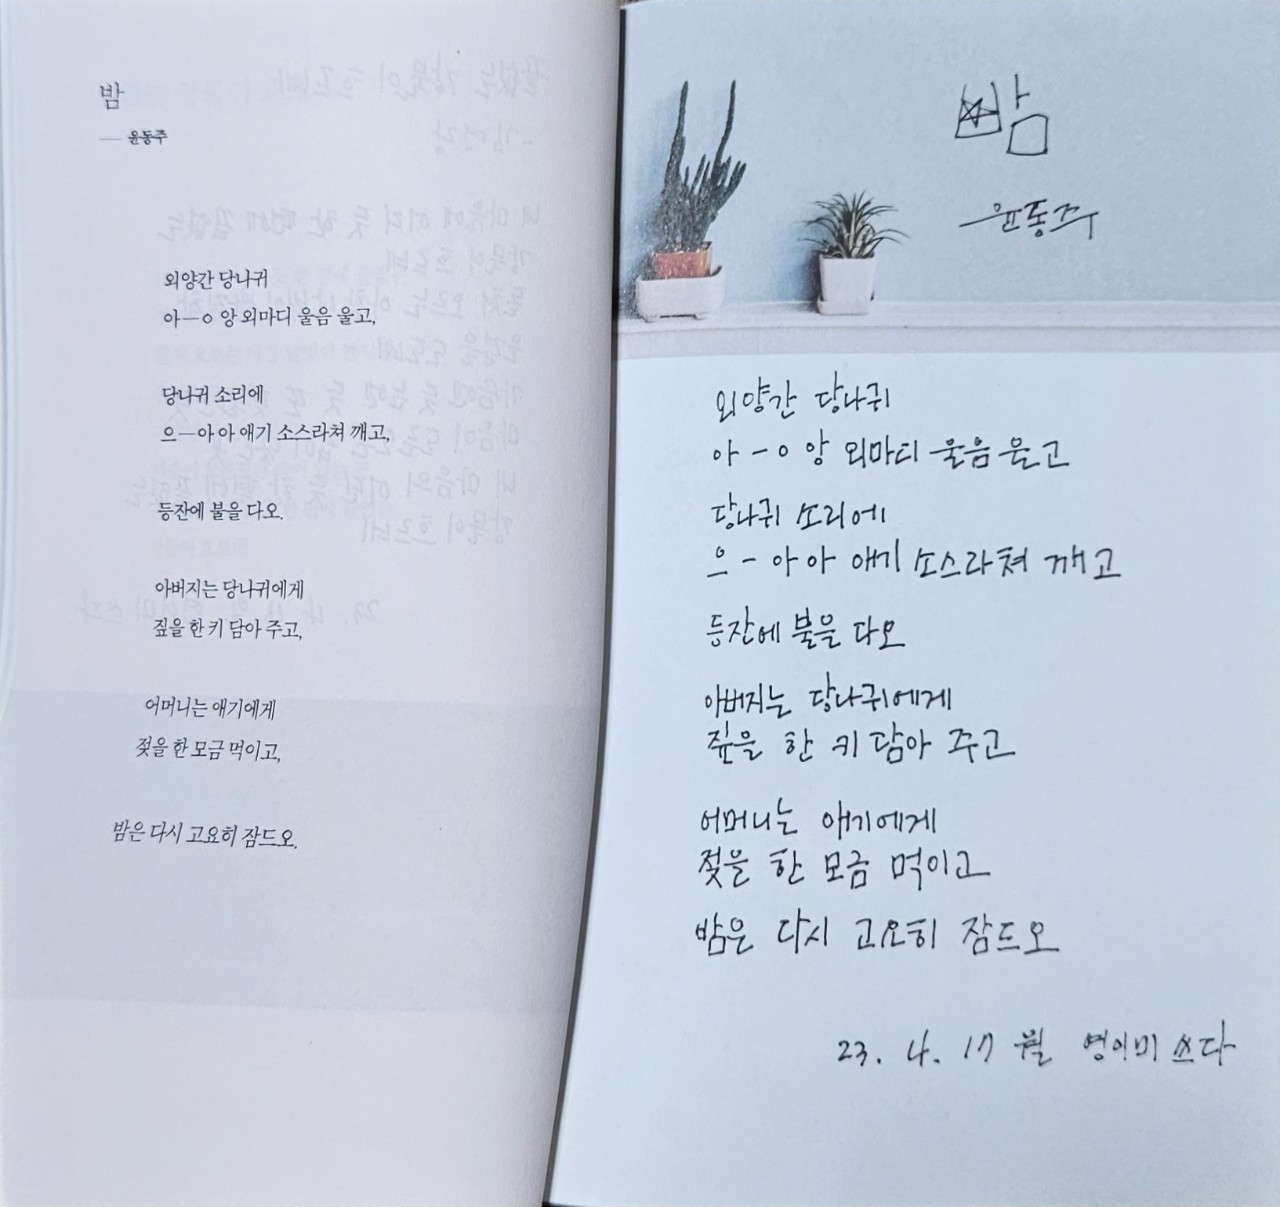 밤
— 윤동주
외양간 당나귀
아—ㅇ 앙 외마디 울음 울고,
당나귀 소리에
으—아 아 애기 소스라쳐 깨고,
등잔에 불을 다오.
아버지는 당나귀에게
짚을 한 키 담아 주고,
어머니는 애기에게
젖을 한 모금 먹이고,
밤은 다시 고요히 잠드오.
밤
- 윤동주
외양간 당나귀
아 - ㅇ 앙 외마디 울음 울고
당나귀 소리에
으 - 아 아 애기 소스라쳐 깨고
등잔에 불을 다오
아버지는 당나귀에게
짚을 한 키 담아 주고
어머니는 애기에게
젖을 한 모금 먹이고
밤은 다시 고요히 잠드오
23. 4. 17 월 영이미 쓰다